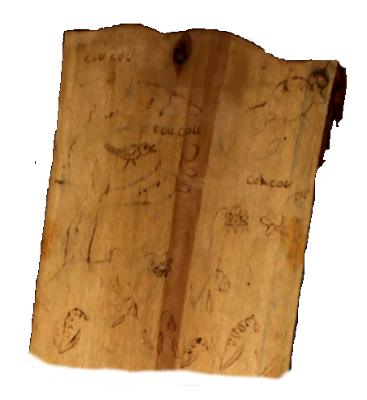 COU COU
COU COU
COU COU